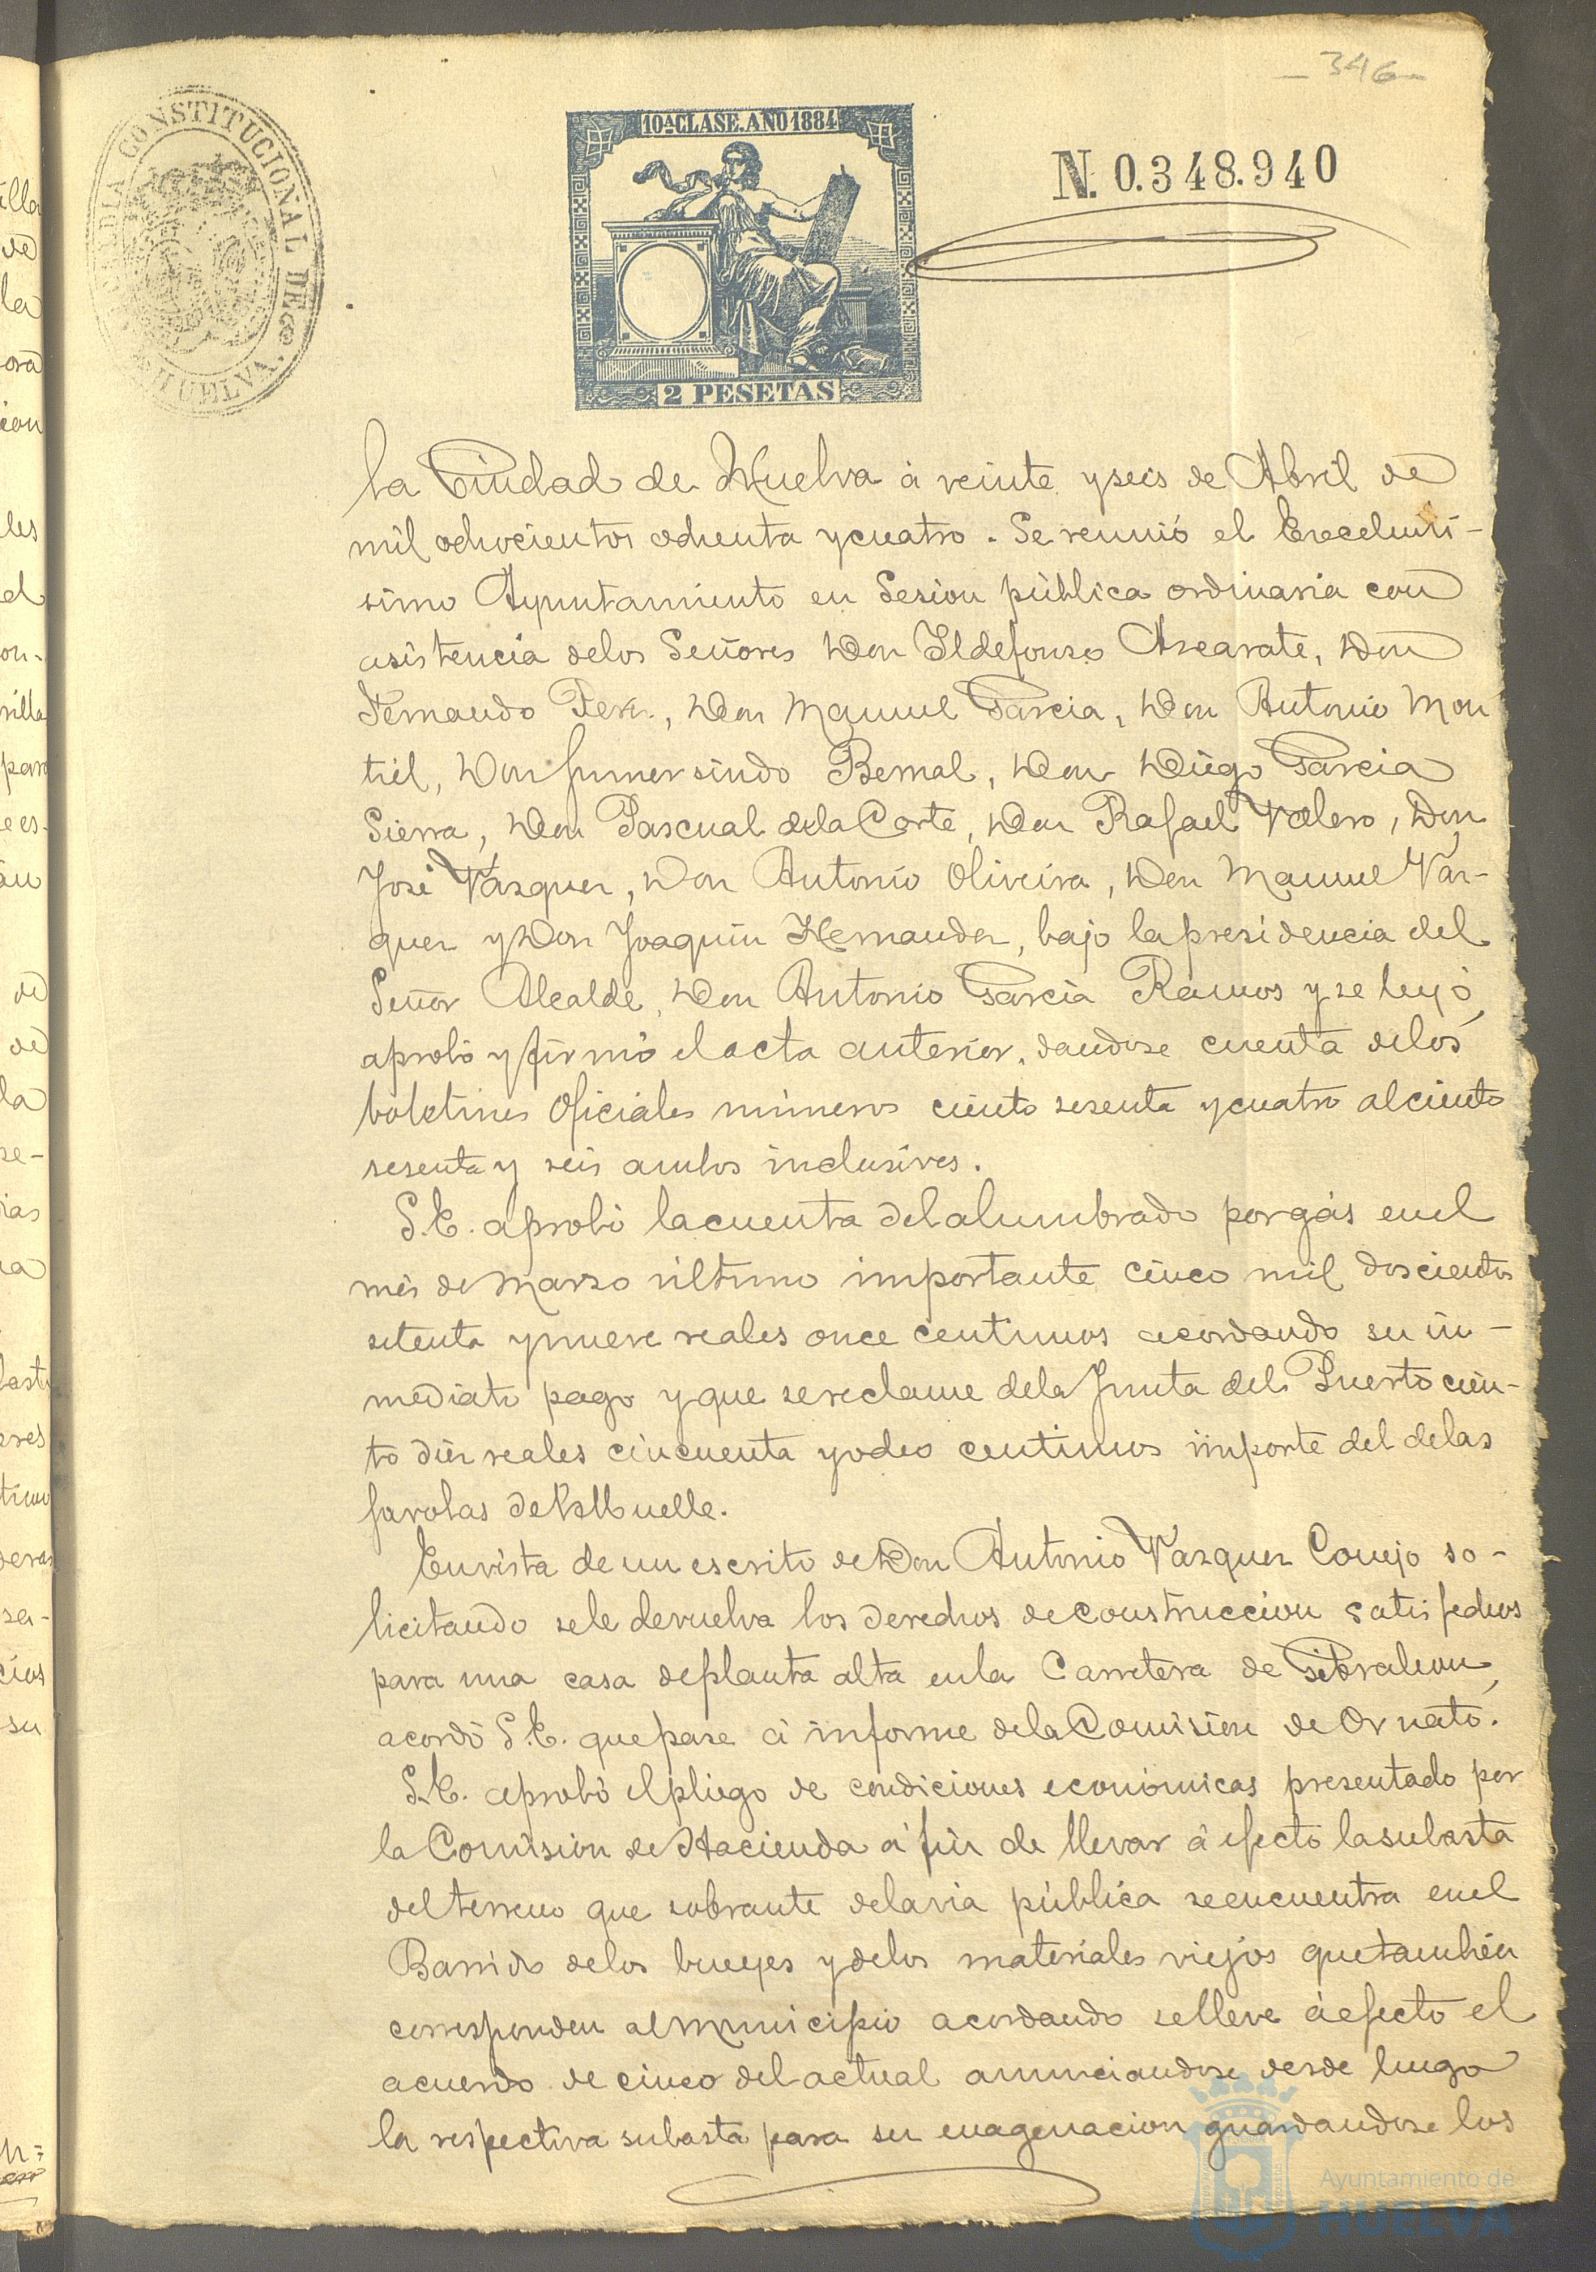 -346-
ALCALDIA CONSTITUCIONAL DE HUELVA
10ª CLASE. AÑO 1884
N. 0.348.940
2 PESETAS
la Ciudad de Huelva á veinte y seis de Abril de
mil ochocientos ochenta y cuatro. Se reunió el Excelentí-
simo Ayuntamiento en Sesion pública ordinaria con
asistencia de los Señores Don Ildefonso Ascarate, Don
Fernando Perez, Don Manuel Garcia, Don Antonio Mon
tiel, Don Gumersindo Bernal, Don Diego Garcia
Sierra, Don Pascual de la Corte, Don Rafael Valero, Don
José Vazquez, Don Antonio Oliveira, Don Manuel Vaz-
quez y Don Joaquin Hernandez, bajo la presidencia del
Señor Alcalde, Don Antonio Garcia Ramos y se leyó,
aprobó y firmó el acta anterior, dandose cuenta de los
boletines Oficiales números ciento sesenta y cuatro al ciento
sesenta y seis ambos inclusives.
S.E. aprobó la cuenta del alumbrado por gás en el
més de Marzo último importante cinco mil doscientos
setenta y nueve reales once centimos acordando su in-
mediato pago y que se reclame de la Junta del Puerto cien-
to diez reales cincuenta y ocho centimos importe del de las
farolas del Muelle.
En vista de un escrito de Don Antonio Vazquez Conejo so-
licitando se le devuelva los derechos de construccion satisfechos
para una casa de planta alta en la Carretera de Gibraleon,
acordó S.E. que pase á informe de la Comision de Ornato.
S.E. aprobó el pliego de condiciones económicas presentado por
la Comision de Hacienda á fin de llevar á efecto la subasta
del terreno que sobrante de la via pública se encuentra en el
Barrido de los bueyes y de los materiales viejos que tambien
corresponden al Municipio acordando se lleve á efecto el
acuerdo de cinco del actual anunciandose desde luego
la respectiva subasta para su enagenacion guardandose los
Ayuntamiento de
HUELVA